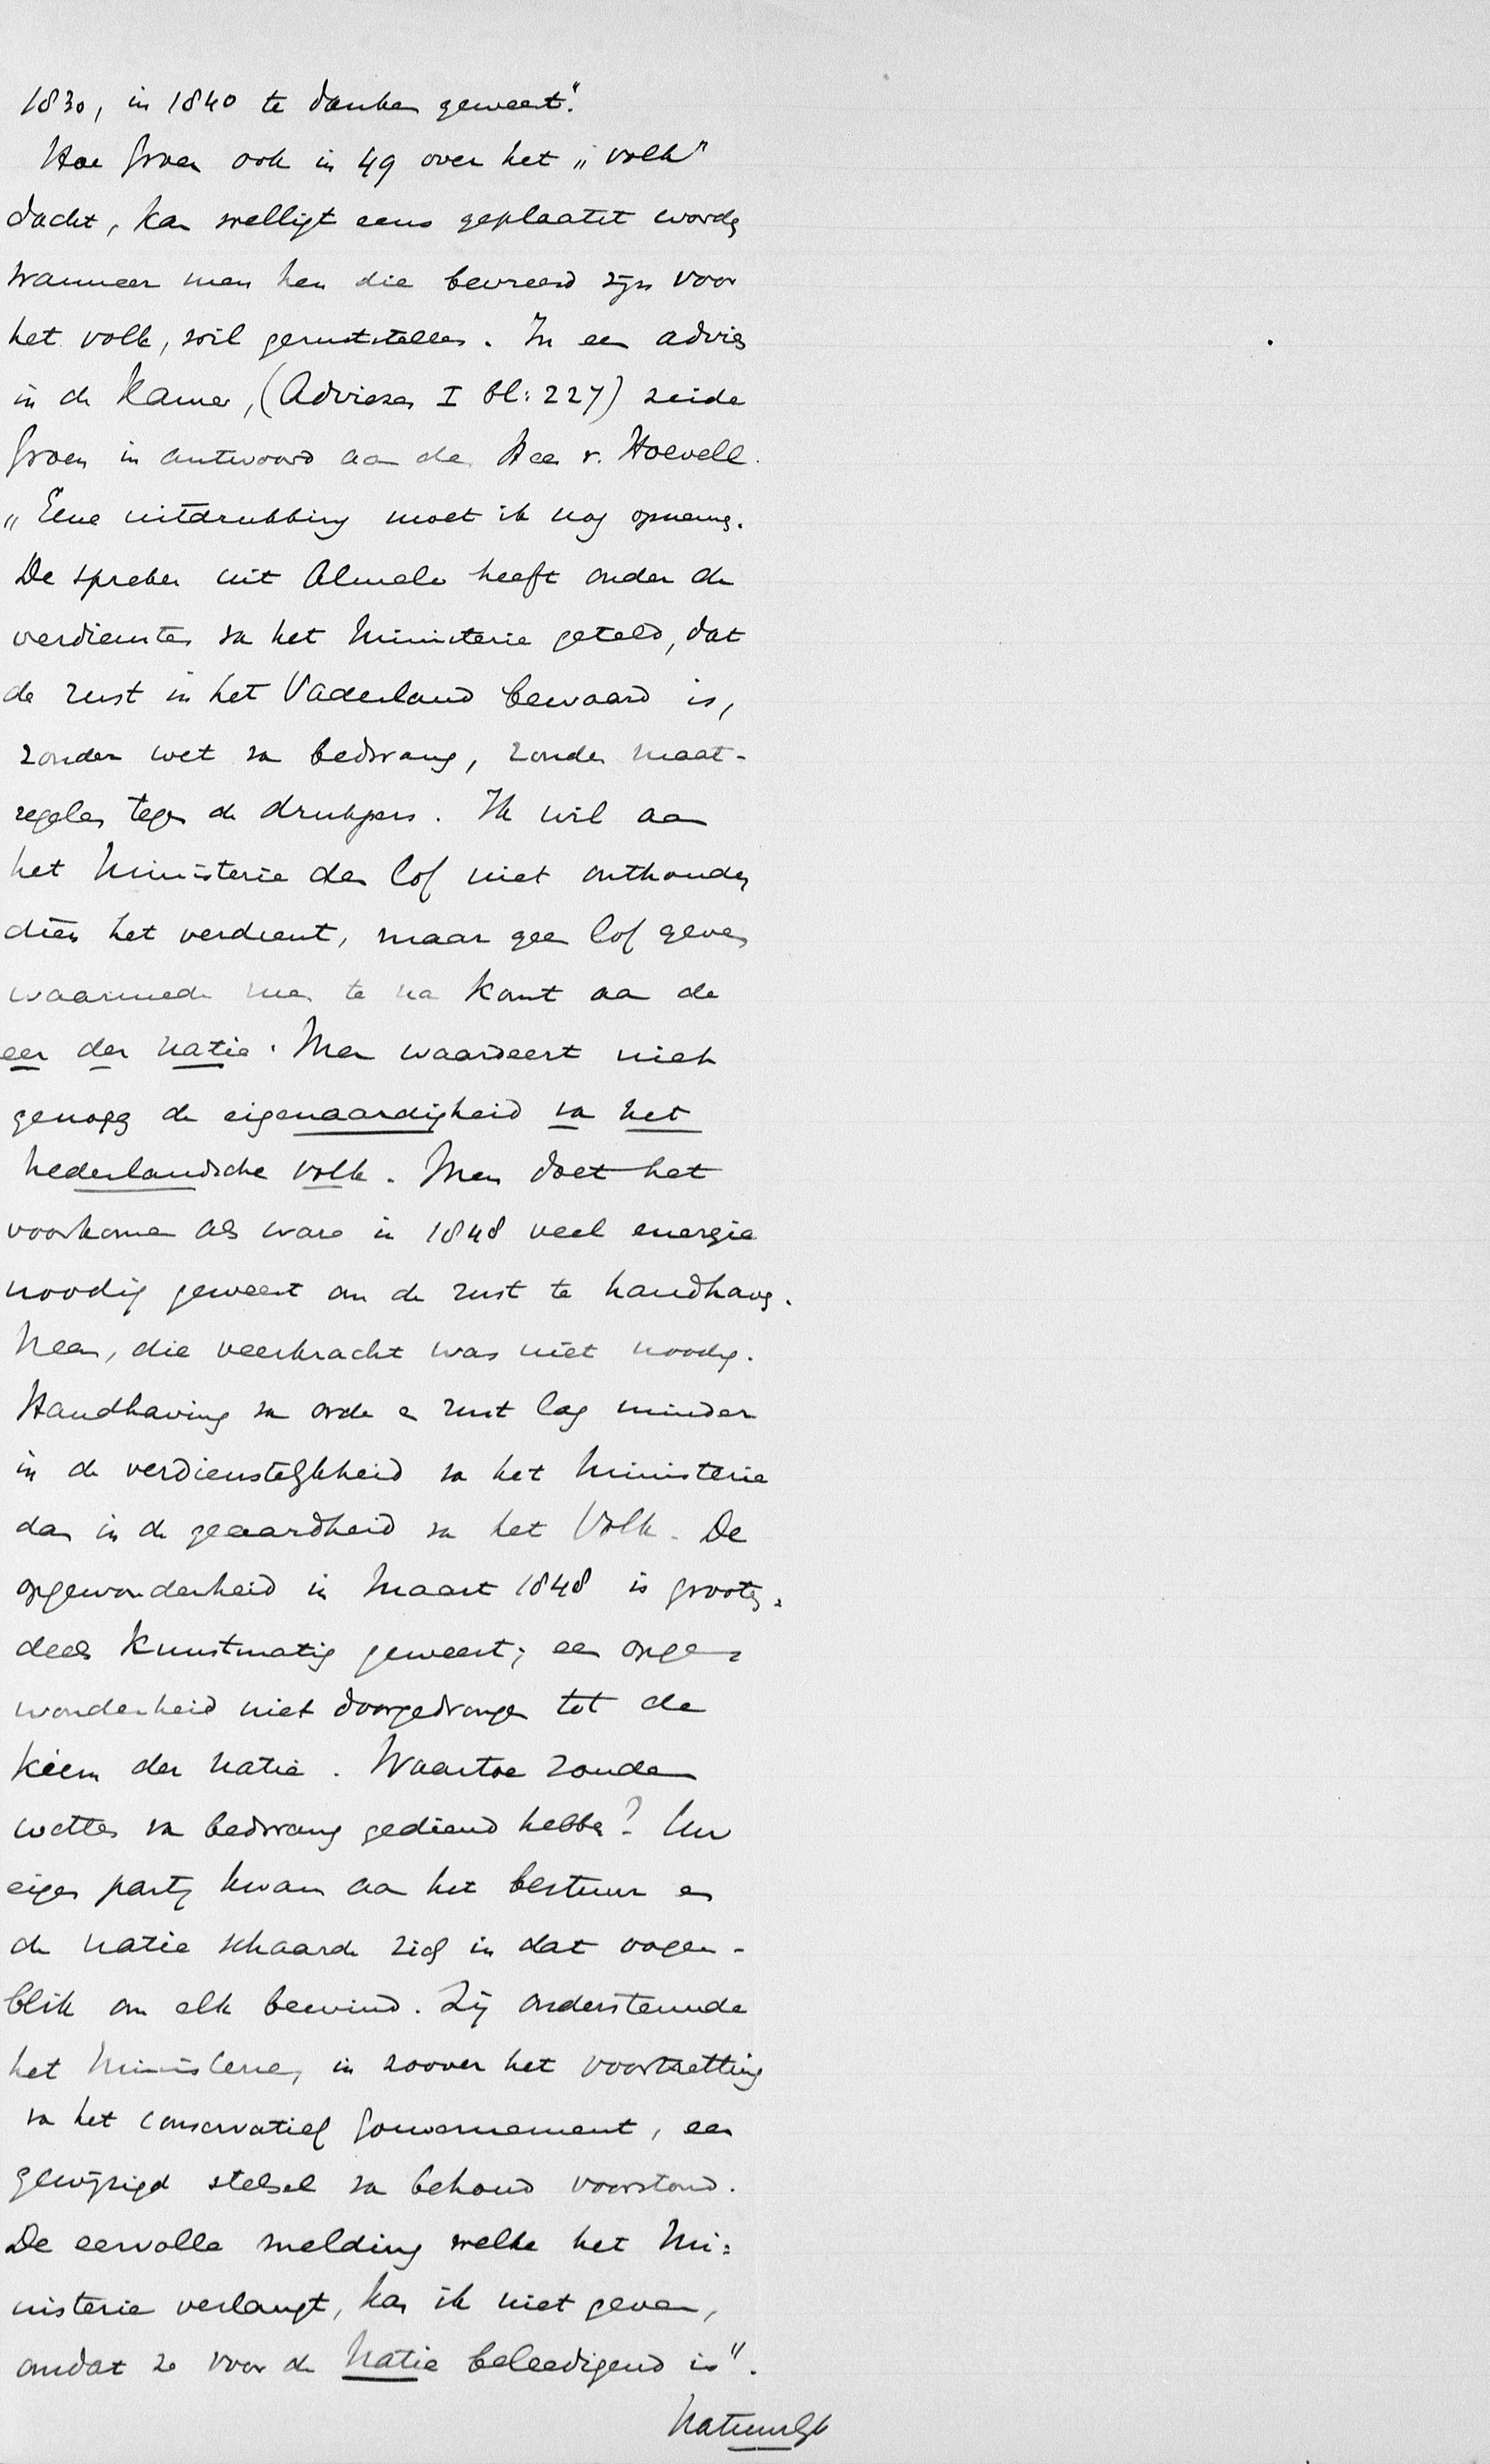 1830, in 1840 te danken geweest".
Hoe Groen ook in 49 over het „volk"
dacht, kan welligt eens geplaatst worden
wanneer men hen die bevreesd zijn voor
het volk, wil geruststellen. In een advies
in de Kamer, (Adviezen I bl: 227) zeide
Groen in antwoord aan den Heer v. Hoevell.
„Eene uitdrukking moet ik nog opnemen.
De spreker uit Almelo heeft onder de
verdiensten van het Ministerie geteld, dat
de rust in het Vaderland bewaard is,
zonder wet van bedwang, zonder maat-
regelen tegen de drukpers. Ik wil aan
het Ministerie den lof niet onthouden
dien het verdient, maar geen lof geven
waarmede men te na komt aan de
eer der natie. Men waardeert niet
genoeg de eigenaardigheid van het
Nederlandsche volk. Men doet het
voorkomen als ware in 1848 veel energie
noodig geweest om de rust te handhaven.
Neen, die veerkracht was niet noodig.
Handhaving van orde en rust lag minder
in de verdienstelijkheid van het Ministerie
dan in de geaardheid van het Volk. De
opgewondenheid in Maart 1848 is grooten=
deels kunstmatig geweest; een opge=
wondenheid niet doorgedrongen tot de
kiem der natie. Waartoe zouden
wetten van bedwang gediend hebben? Uw
eigen partij kwam aan het bestuur en
de natie schaarde zich in dat oogen-
blik om elk bewind. Zij ondersteunde
het Ministerie, in zoover het voortzetting
van het conservatief Gouvernement, een
gewijzigd stelsel van behoud voorstond.
De eervolle melding welke het Mi=
nisterie verlangt, kan ik niet geven,
omdat ze voor de Natie beleedigend is".
Natuurlijk